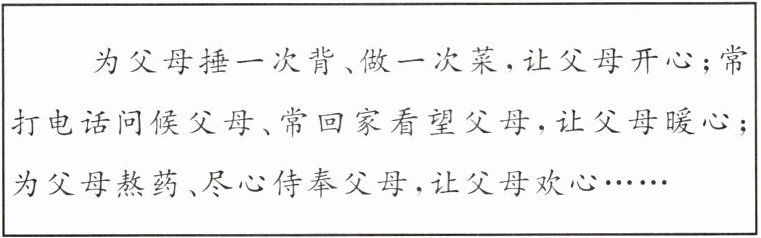 为父母捶一次背、做一次菜,让父母开心;常
打电话问候父母、常回家看望父母,让父母暖心;
为父母熬药、尽心侍奉父母,让父母欢心……